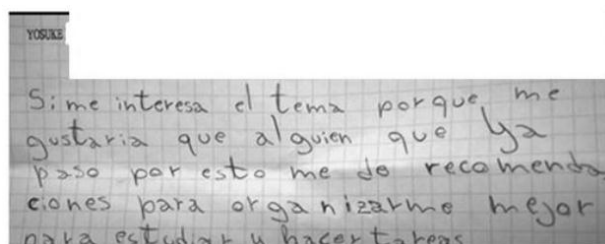 YOSUKE
Si me interesa el tema porque me
gustaria que alguien que ya
paso por esto me de recomenda
ciones para organizarme mejor
para estudiar y hacer tareas